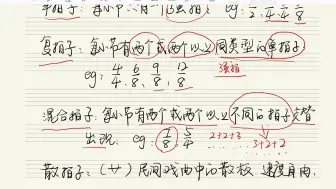 单拍子：每小节只有一个强拍 eg: 2/4 3/4 3/8
复拍子：每小节有两个或两个以上同类型的单拍子
eg: 4/4 6/8 9/8 12/8 强弱
混合拍子：每小节有两个或两个以上不同的拍子交替
出现. eg: 7/8 5/4 2+2+3
3+2+2
散拍子：(サ) 民间戏曲中的散板 速度自由.